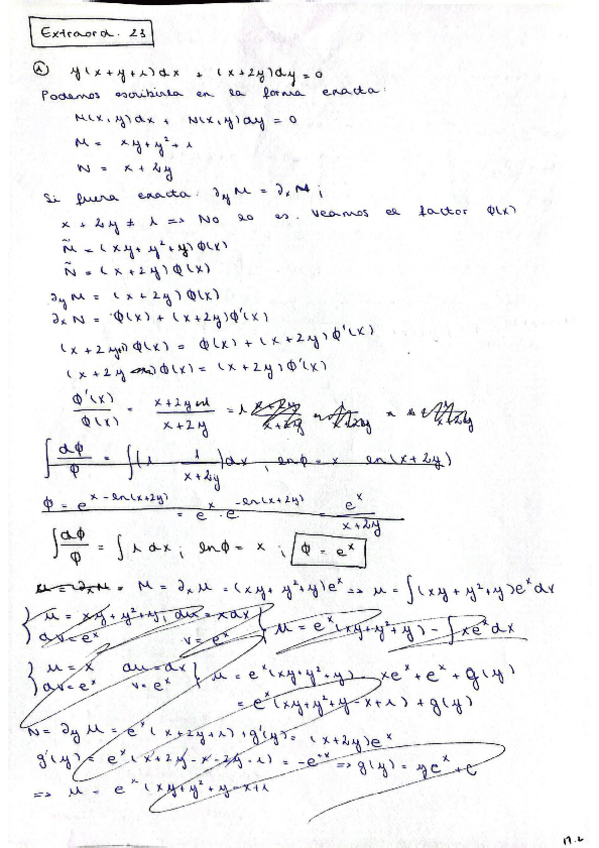 Extraord. 23
① y(x+y+1)dx + (x+2y)dy = 0
Podemos escribirla en la forma exacta:
M(x,y)dx + N(x,y)dy = 0
M = xy+y²+1
N = x+2y
Si fuera exacta: ∂yM = ∂xN;
x + 2y ≠ 1 => No lo es. Veamos el factor φ(x)
M̃ = (xy+y²+y)φ(x)
Ñ = (x+2y)φ(x)
∂yM = (x+2y)φ(x)
∂xN = φ(x) + (x+2y)φ'(x)
(x+2y+1)φ(x) = φ(x) + (x+2y)φ'(x)
(x+2y)φ(x) = (x+2y)φ'(x)
φ'(x)/φ(x) = x+2y/x+2y = 1
∫dφ/φ = ∫(1 1/x+2y)dx; lnφ = x ln(x+2y)
φ = e^(x-ln(x+2y)) = e^x·e^(-ln(x+2y)) = e^x/x+2y
∫dφ/φ = ∫1dx; lnφ = x; φ = e^x
M = ∂xu = (xy+y²+y)e^x => u = ∫(xy+y²+y)e^x dx
{u = xy+y²+y; du = xdx dv = e^x v = e^x { u = e^x(xy+y²+y) - ∫xe^x dx
{u = x du = dx dv = e^x v = e^x { u = e^x(xy+y²+y) - xe^x + e^x + g(y)
= e^x(xy+y²+y-x+1) + g(y)
N = ∂yu = e^x(x+2y+1) + g'(y) = (x+2y)e^x
g'(y) = e^x(x+2y-x-2y-1) = -e^x => g(y) = ye^x + C
=> u = e^x(xy+y²+y-x+1